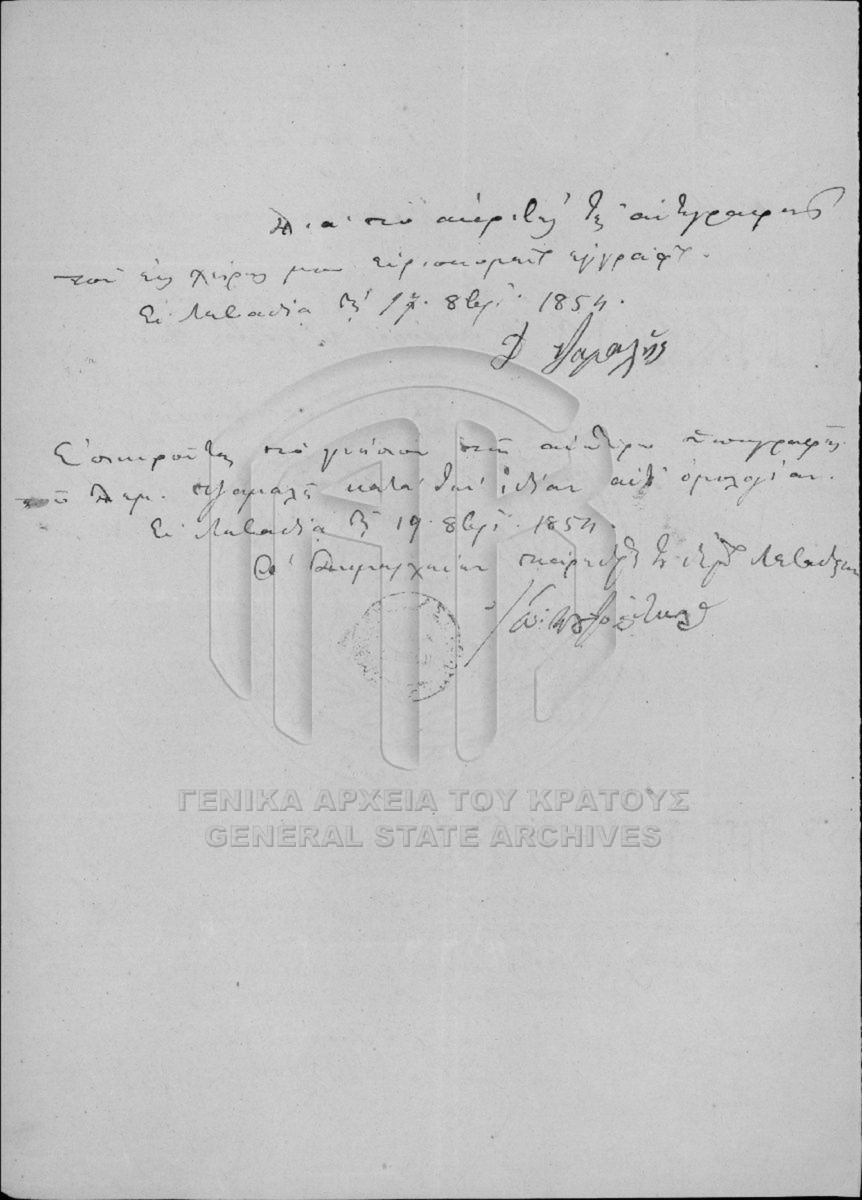 Διὰ τὸ ἀκριβὲς τῆς ἀντιγραφῆς
τοῦ εἰς χεῖράς μου εὑρισκομένου ἐγγράφου.
Ἐν Λεβαδεία τῇ 17. 8βρίου 1854.
Δ
Ἐπικυροῦται τὸ γνήσιον τῆς ἀνωτέρω ὑπογραφῆς
τοῦ Δημ. κατὰ τὴν ἰδίαν αὐτοῦ ὁμολογίαν.
Ἐν Λεβαδεία τῇ 19. 8βρίου 1854.
Ὁ Δημαρχικὸς πάρεδρος τοῦ Δήμου Λεβαδέων
ΓΕΝΙΚΑ ΑΡΧΕΙΑ ΤΟΥ ΚΡΑΤΟΥΣ
GENERAL STATE ARCHIVES